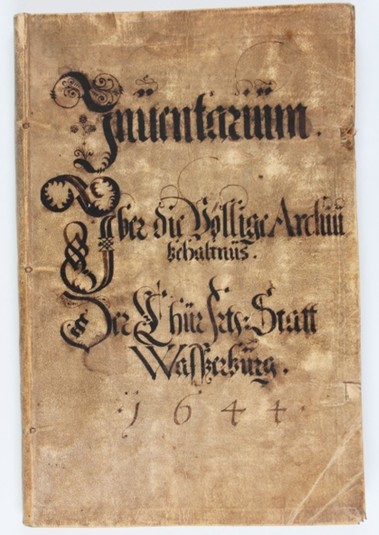 Inüentariüm.
Vber die Völlige Archiü
behaltnüs.
Der Chür frtl: Statt
Wasserbürg.
1644